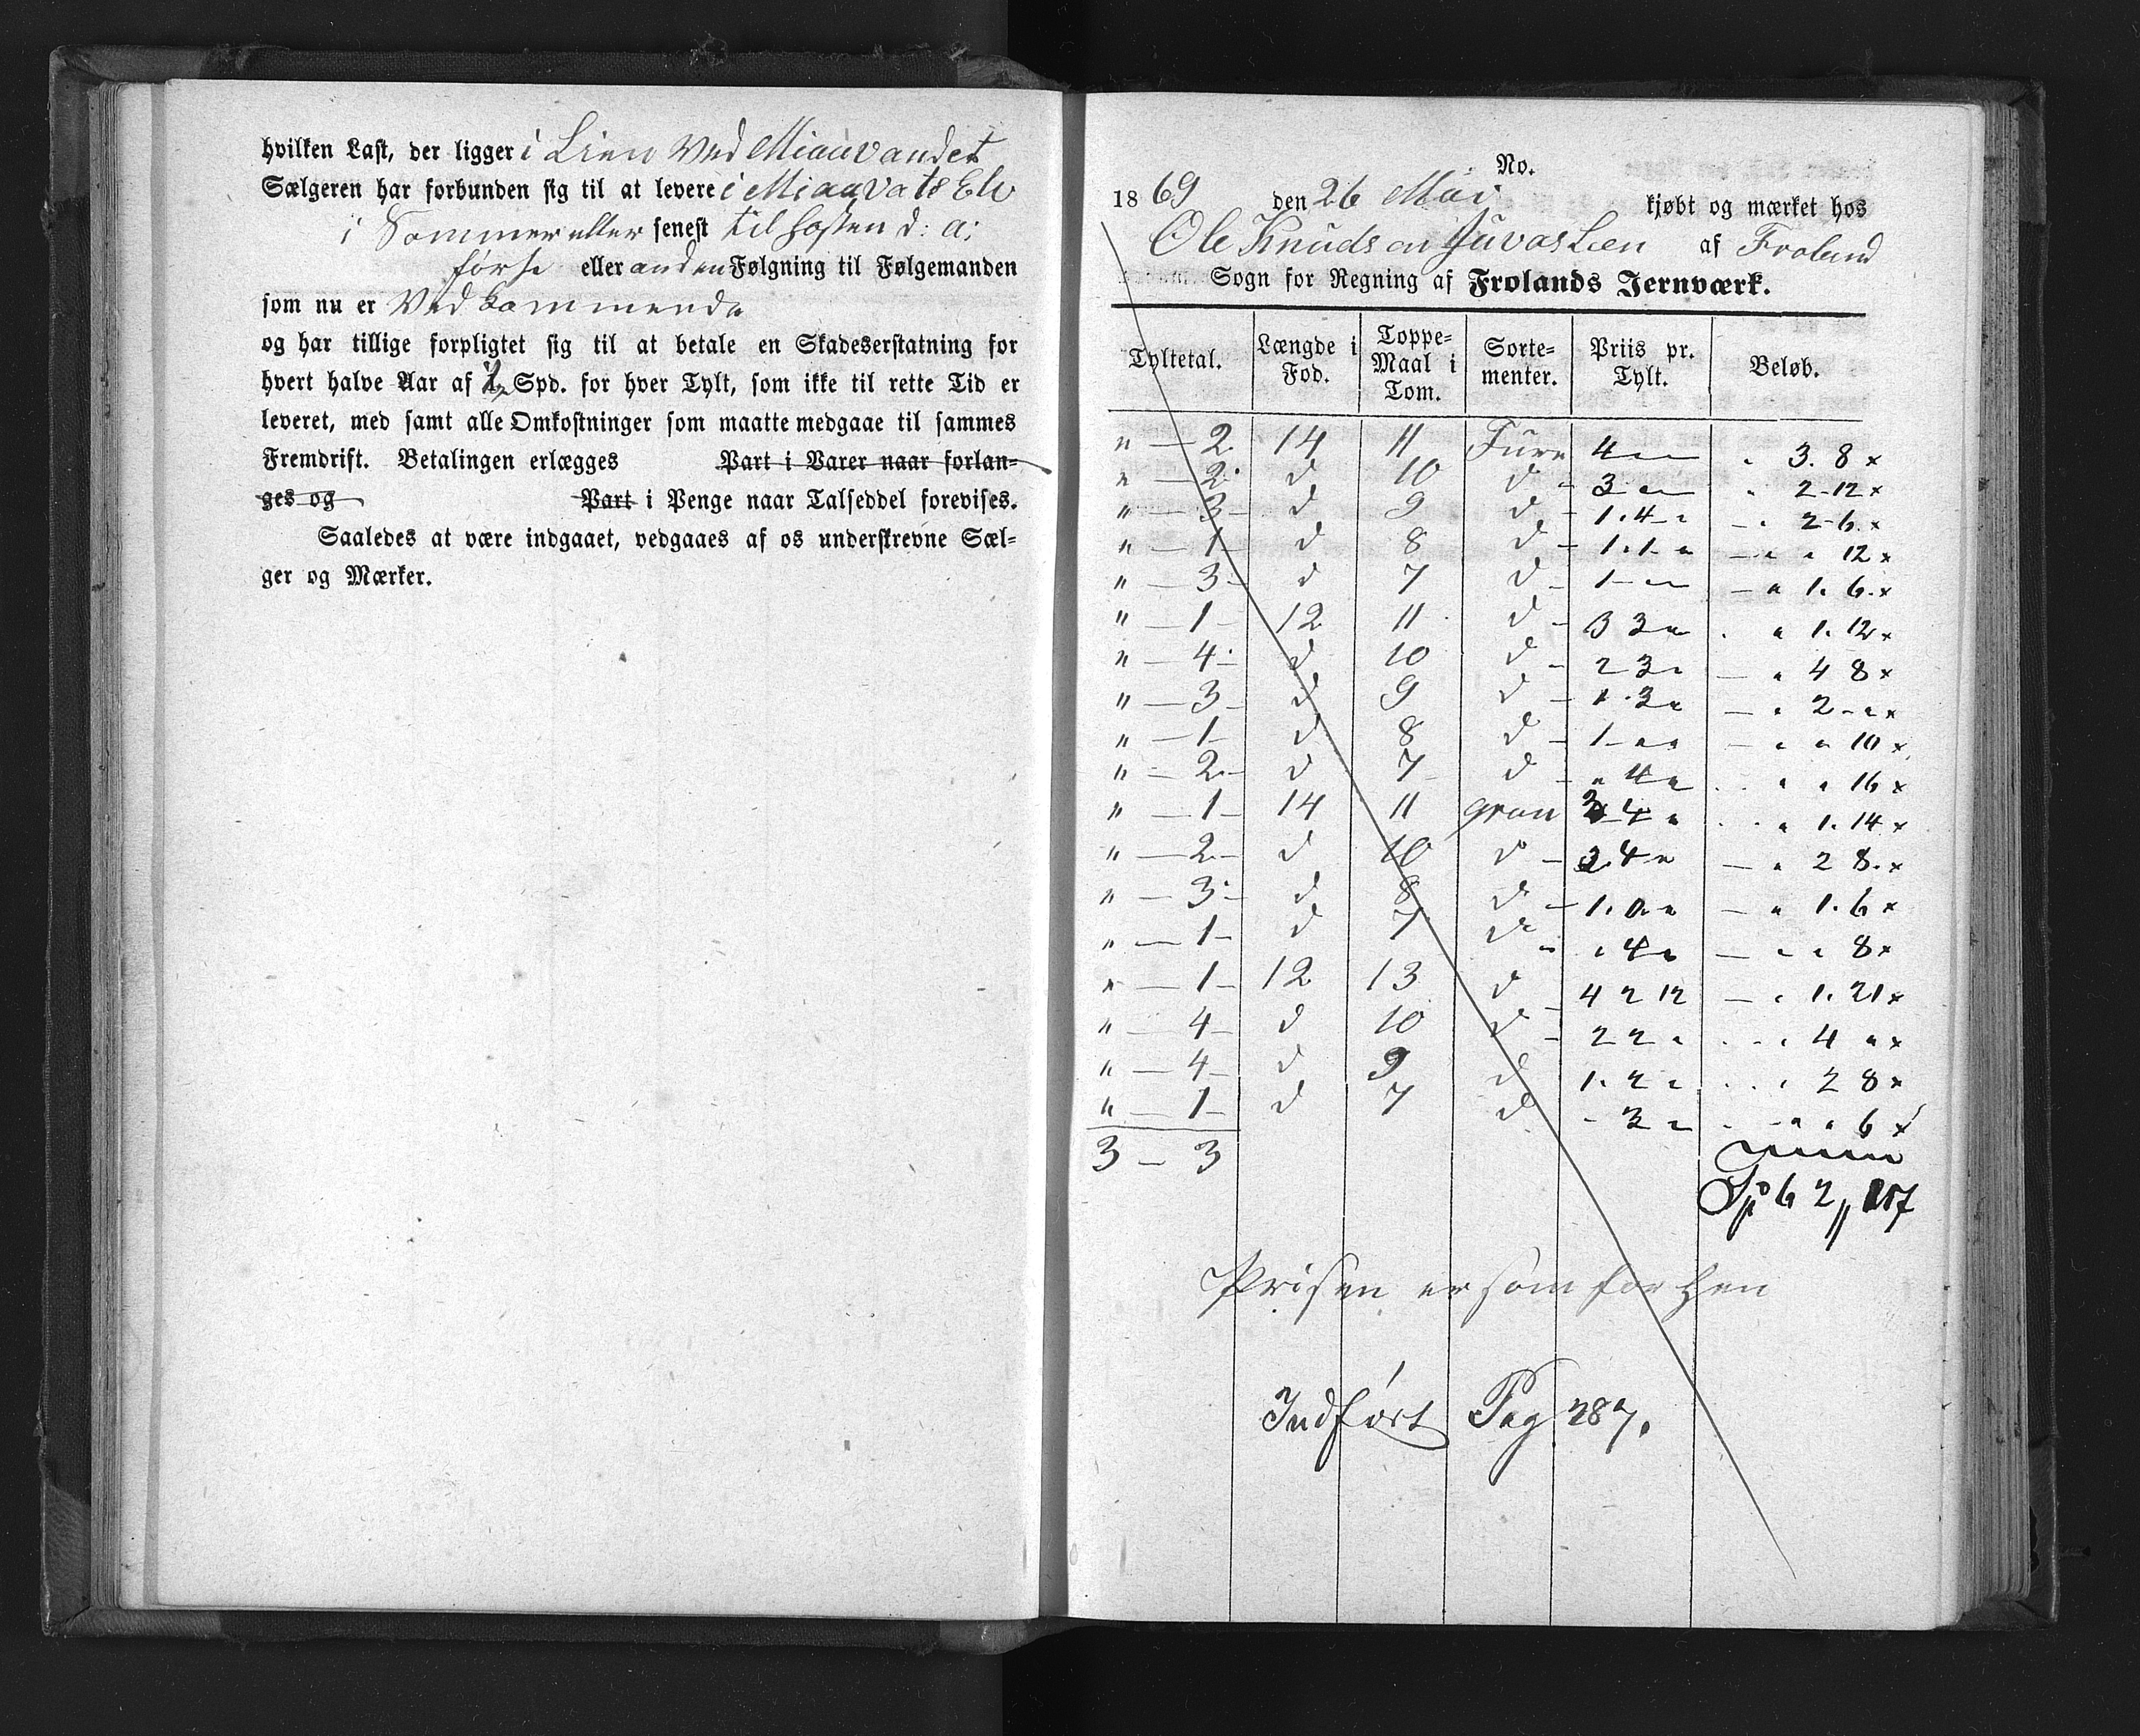 hvilken Last, der ligger i Lien ved Miauvandet
Sælgeren har forbunden sig til at levere i Miauvats Elv
i Sommer eller senest til Høsten d: a:
førse eller anden Følgning til Følgemanden
som nu er Vedkommende
og har tillige forpligtet sig til at betale en Skadeserstatning for
hvert halve Aar af ½ Spd. for hver Tylt, som ikke til rette Tid er
leveret, med samt alle Omkostninger som maatte medgaae til sammes
Fremdrift. Betalingen erlægges Part i Varer naar forlan-
ges og Part i Penge naar Talseddel forevises.
Saaledes at være indgaaet, vedgaaes af os underskrevne Sæl-
ger og Mærker.
No.
1869 den 26 Mai kjøbt og mærket hos
Ole Knudsen Juvas Lien af Froland
Sogn for Regning af Frolands Jernværk.
Tyltetal. Længde i Fod. Toppe-Maal i Tom. Sorte-menter. Priis pr. Tylt. Beløb.
" — 2 14 11 Furu 4 " " " 3. 8 x
" — 2 d 10 d - 3 " " " 2-12 x
" — 3 d 9 d - 1. 4 - " - " 2-6. x
" — 1 d 8 d - 1. 1 - " - " " 12 x
" — 3 d 7 d - 1 - " " - " 1. 6. x
" — 1 12 11 d - 3 3 " " 1. 12 x
" — 4 d 10 d - 2 3 " - " 4 8 x
" — 3 d 9 d - 1. 3 " - " 2 - " x
" — 1 d 8 d - 1 - " " - " " 10 x
" — 2 d 7 d - " 4 " " " 16 x
" — 1 14 11 gran 3 4 " " 1. 14 x
" — 2 d 10 d - 3. 4 " - " 2 8. x
" — 3 d 8 d - 1. 0. " - " 1. 6 x
" — 1 d 7 d " " 4 " - " " 8 x
" — 1 12 13 d - 4 2 12 - " 1. 21 x
" — 4 d 10 d - 2 2 " - " 4 " x
" — 4 d 9 d 1. 2 " " 2 8 x
" — 1 d 7 d - 3 " - " " 6 x
3 — 3
Sp 6 2 "
Prisen er som for hen
Indført Pag 287.